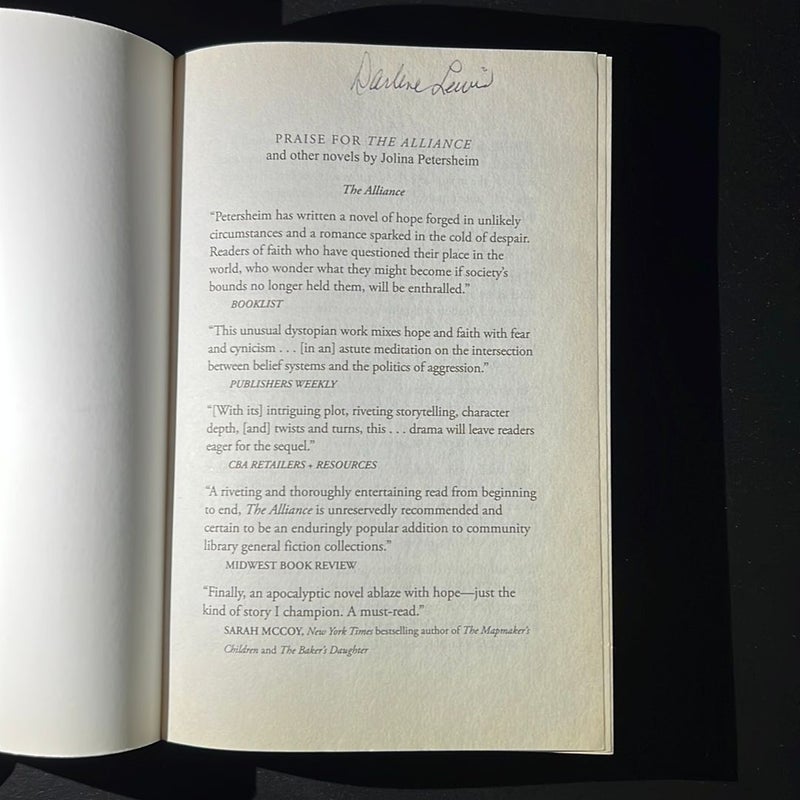 Darlene Lewis
PRAISE FOR THE ALLIANCE
and other novels by Jolina Petersheim
The Alliance
“Petersheim has written a novel of hope forged in unlikely
circumstances and a romance sparked in the cold of despair.
Readers of faith who have questioned their place in the
world, who wonder what they might become if society’s
bounds no longer held them, will be enthralled.”
BOOKLIST
“This unusual dystopian work mixes hope and faith with fear
and cynicism . . . [in an] astute meditation on the intersection
between belief systems and the politics of aggression.”
PUBLISHERS WEEKLY
“[With its] intriguing plot, riveting storytelling, character
depth, [and] twists and turns, this . . . drama will leave readers
eager for the sequel.”
CBA RETAILERS + RESOURCES
“A riveting and thoroughly entertaining read from beginning
to end, The Alliance is unreservedly recommended and
certain to be an enduringly popular addition to community
library general fiction collections.”
MIDWEST BOOK REVIEW
“Finally, an apocalyptic novel ablaze with hope—just the
kind of story I champion. A must-read.”
SARAH MCCOY, New York Times bestselling author of The Mapmaker’s
Children and The Baker’s Daughter